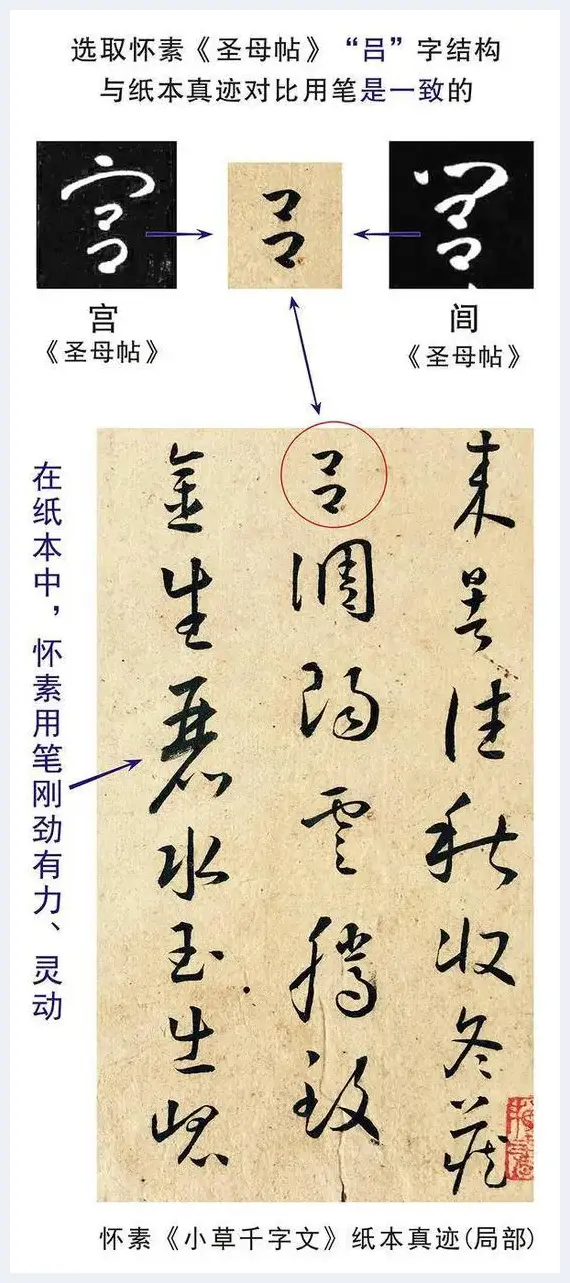 选取怀素《圣母帖》“吕”字结构
与纸本真迹对比用笔是一致的
宫
吕
訚
宫
《圣母帖》
闾
《圣母帖》
来暑往秋收冬藏
吕调阳云腾致
金生丽水玉生崐
在纸本中，怀素用笔刚劲有力、灵动
怀素《小草千字文》纸本真迹(局部)